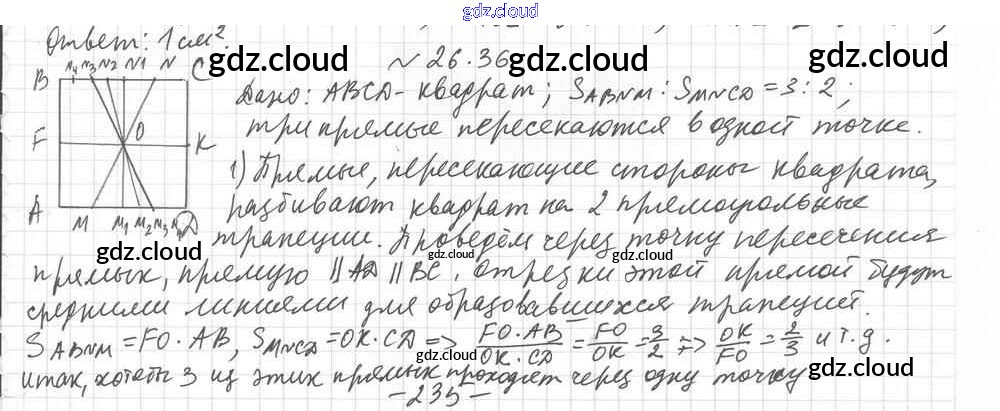 gdz.cloud
Ответ: 1 см².
№ 26.36
B N4 N3 N2 N1 N C
Дано: ABCD - квадрат; S_ABNM : S_MNCD = 3 : 2;
три прямые пересекаются в одной точке.
F O K
1) Прямые, пересекающие стороны квадрата,
A M M1 M2 M3 M4 D
разбивают квадрат на 2 прямоугольные
трапеции. Проведём через точку пересечения
прямых, прямую || AD || BC. Отрезки этой прямой будут
средними линиями для образовавшихся трапеций.
S_ABNM = FO · AB, S_MNCD = OK · CD => FO · AB / OK · CD = FO / OK = 3/2 => OK / FO = 2/3 и т.д.
итак, хотя бы 3 из этих прямых проходят через одну точку
- 235 -
gdz.cloud
gdz.cloud
gdz.cloud
gdz.cloud
gdz.cloud
gdz.cloud
gdz.cloud
gdz.cloud
gdz.cloud
gdz.cloud